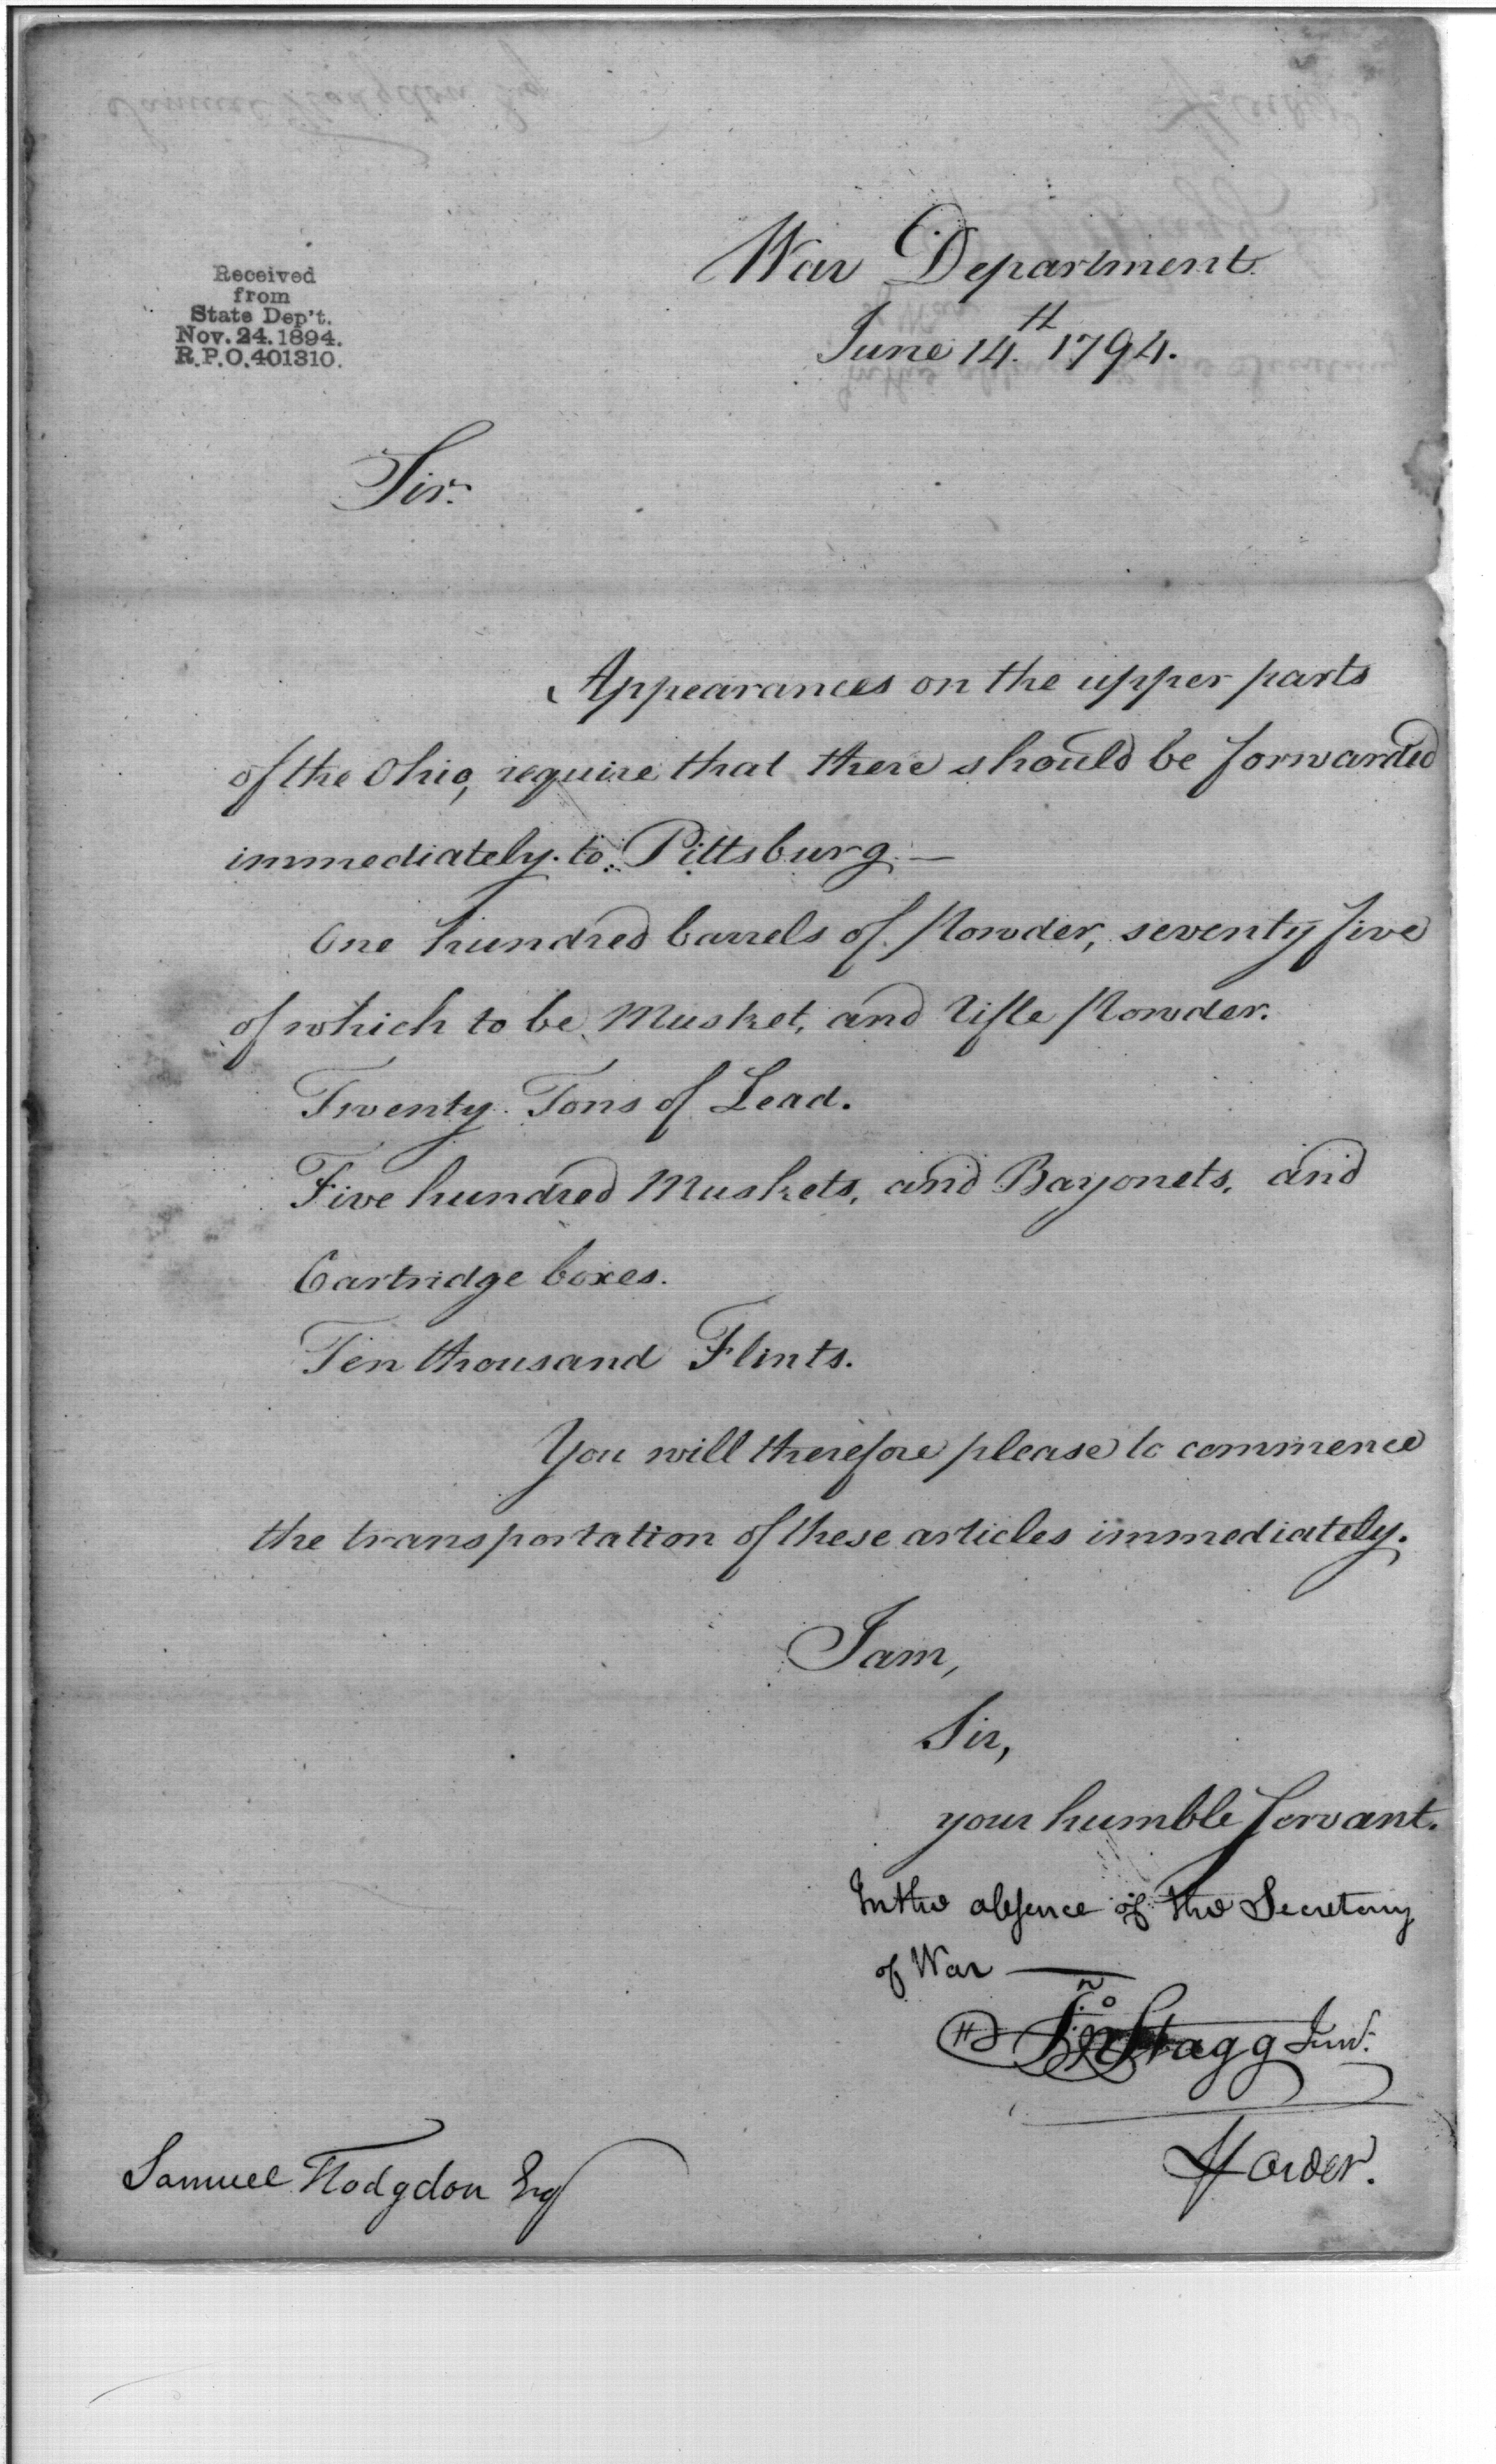 War Department
June 14th 1794.
Received
from
State Dep't.
Nov. 24. 1894.
R.P.O. 401310.
Sir.
Appearances on the upper parts
of the Ohio, require that there should be forwarded
immediately to Pittsburg —
One hundred barrels of Powder, seventy five
of which to be Musket, and rifle Powder.
Twenty Tons of Lead.
Five hundred Muskets, and Bayonets, and
Cartridge boxes.
Ten thousand Flints.
You will therefore please to commence
the transportation of these articles immediately.
I am,
Sir,
your humble Servant.
In the absence of the Secretary
of War —
Jno Stagg Junr.
Samuel Hodgdon Esq